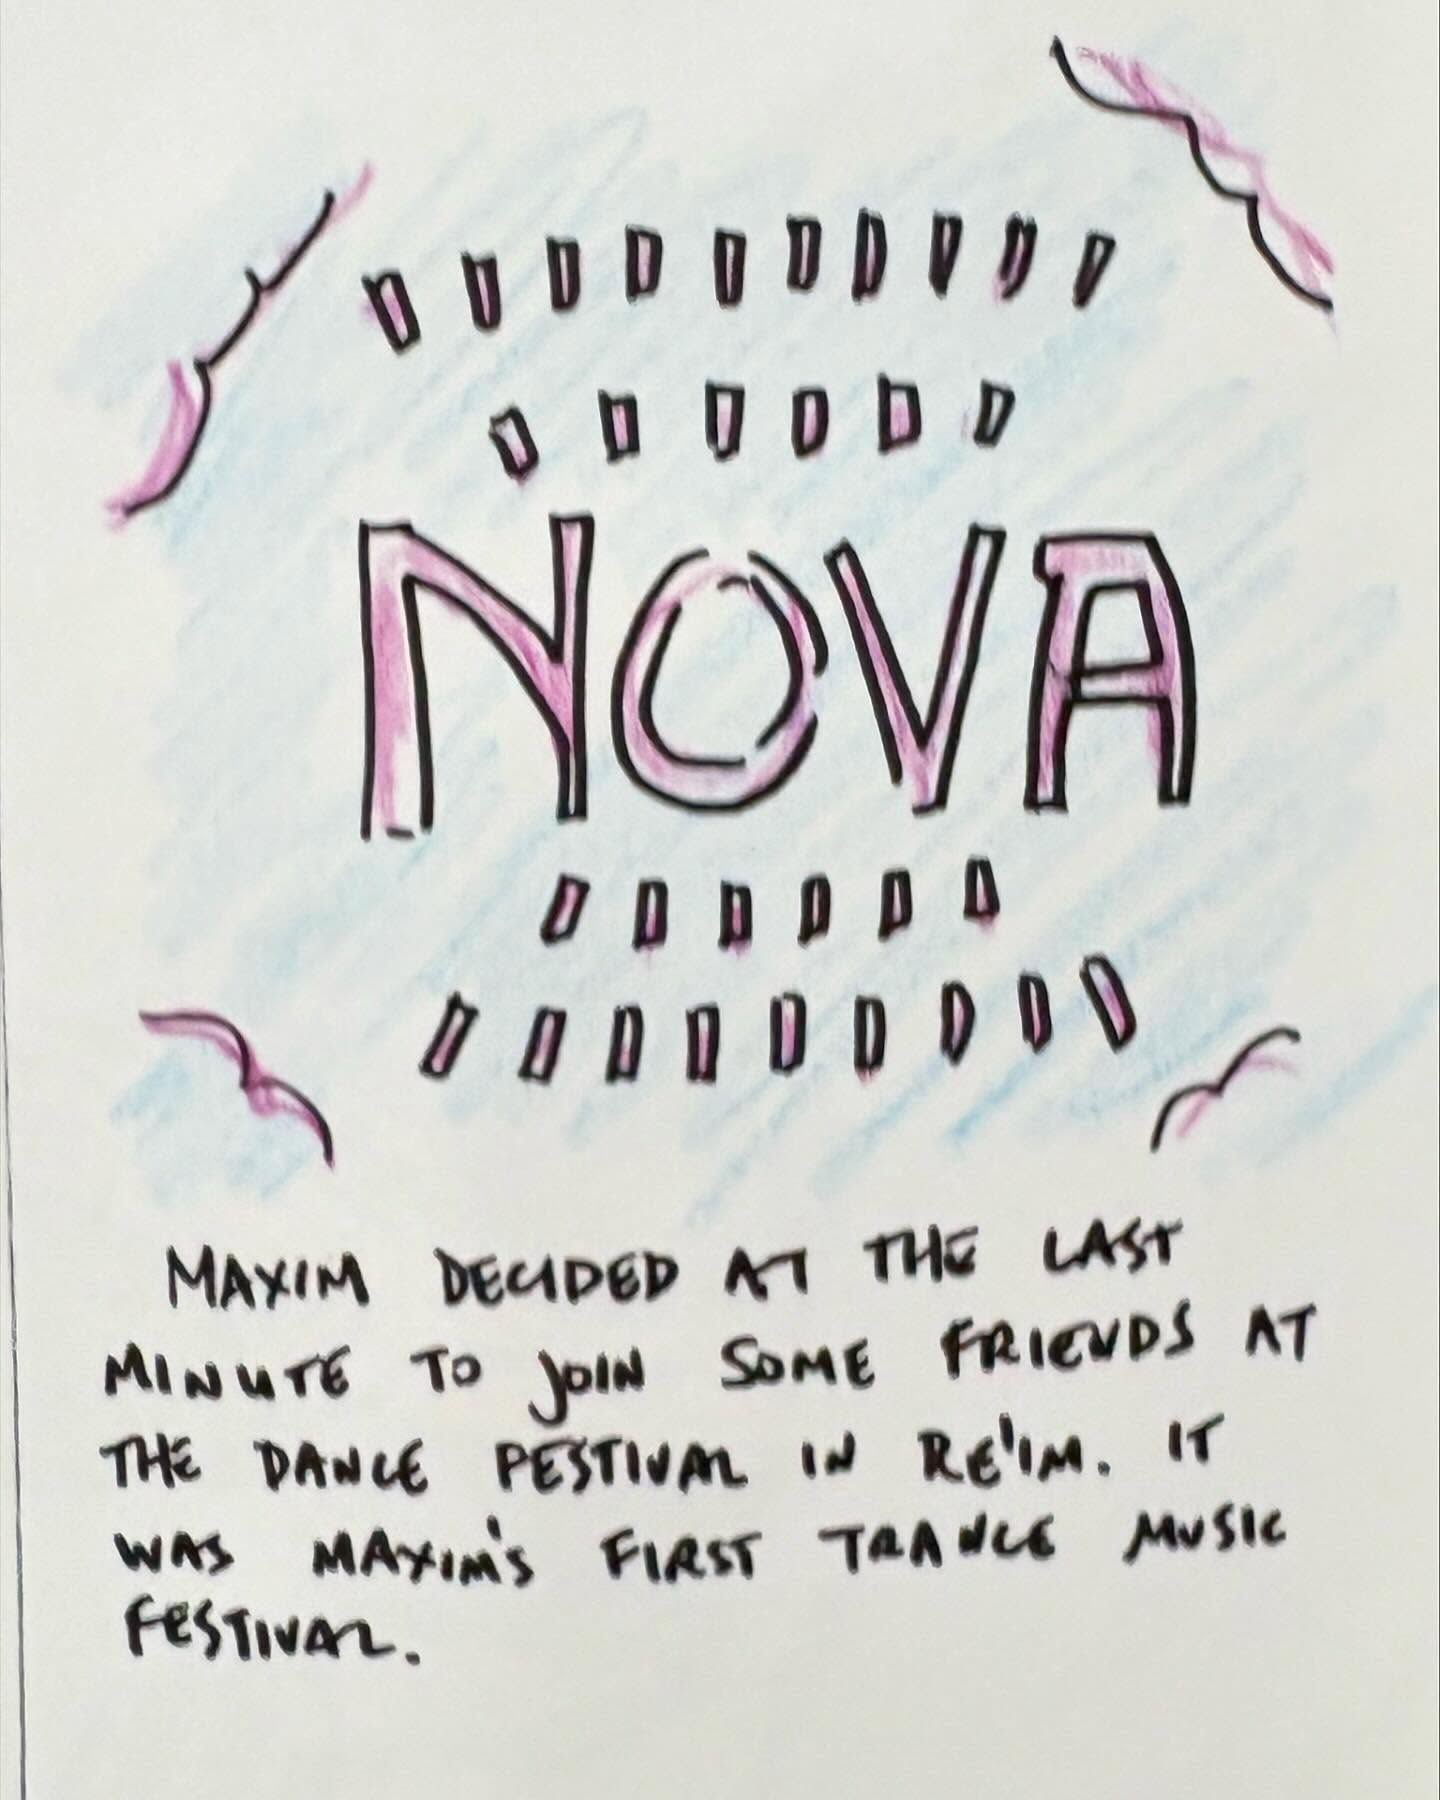 NOVA
MAXIM DECIDED AT THE LAST
MINUTE TO JOIN SOME FRIENDS AT
THE DANCE FESTIVAL IN RE'IM. IT
WAS MAXIM'S FIRST TRANCE MUSIC
FESTIVAL.